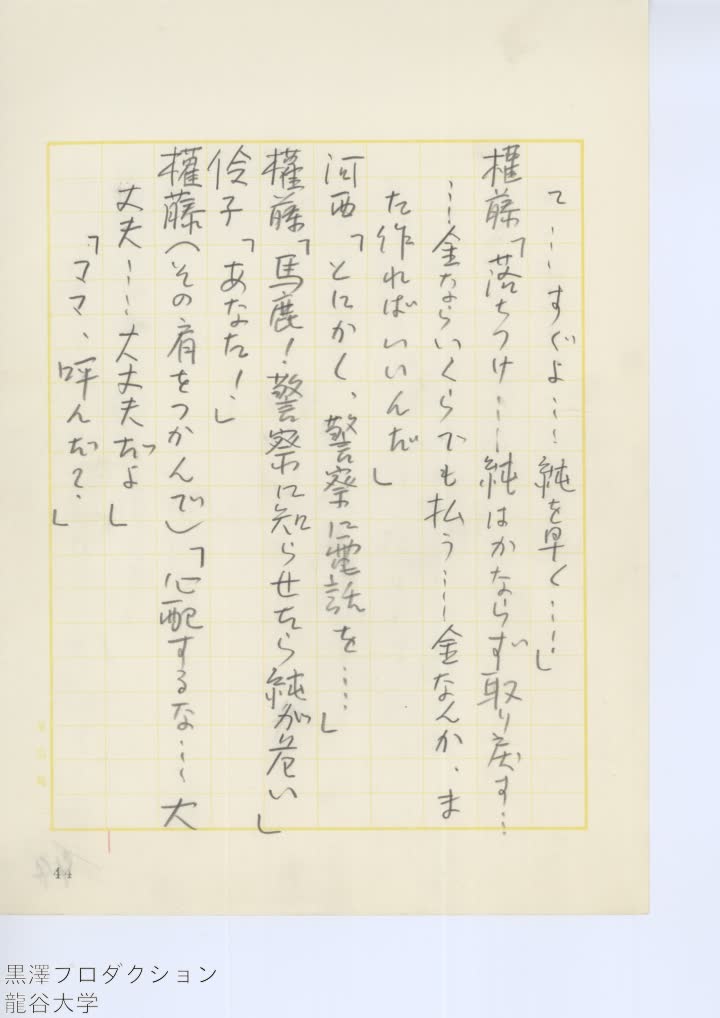 て……すぐよ……純を早く……」
権藤「落ちつけ……純はかならず取り戻す…
…金ならいくらでも払う……金なんか、ま
た作ればいいんだ」
河西「とにかく、警察に電話を……」
権藤「馬鹿！警察に知らせたら純が危い」
伶子「あなた！」
権藤（その肩をつかんで）「心配するな……大
丈夫……大丈夫だよ」
「ママ、呼んだ？」
44
黒澤プロダクション
龍谷大学